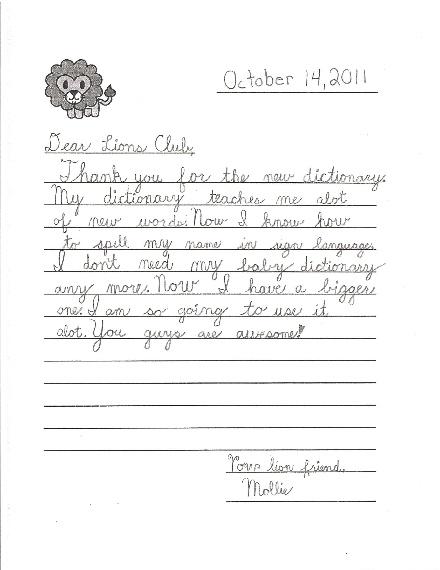 October 14, 2011
Dear Lions Club,
Thank you for the new dictionary.
My dictionary teaches me alot
of new words. Now I know how
to spell my name in sign language.
I don't need my baby dictionary
any more. Now I have a bigger
one. I am so going to use it
alot. You guys are awesome!
Your lion friend,
Mollie